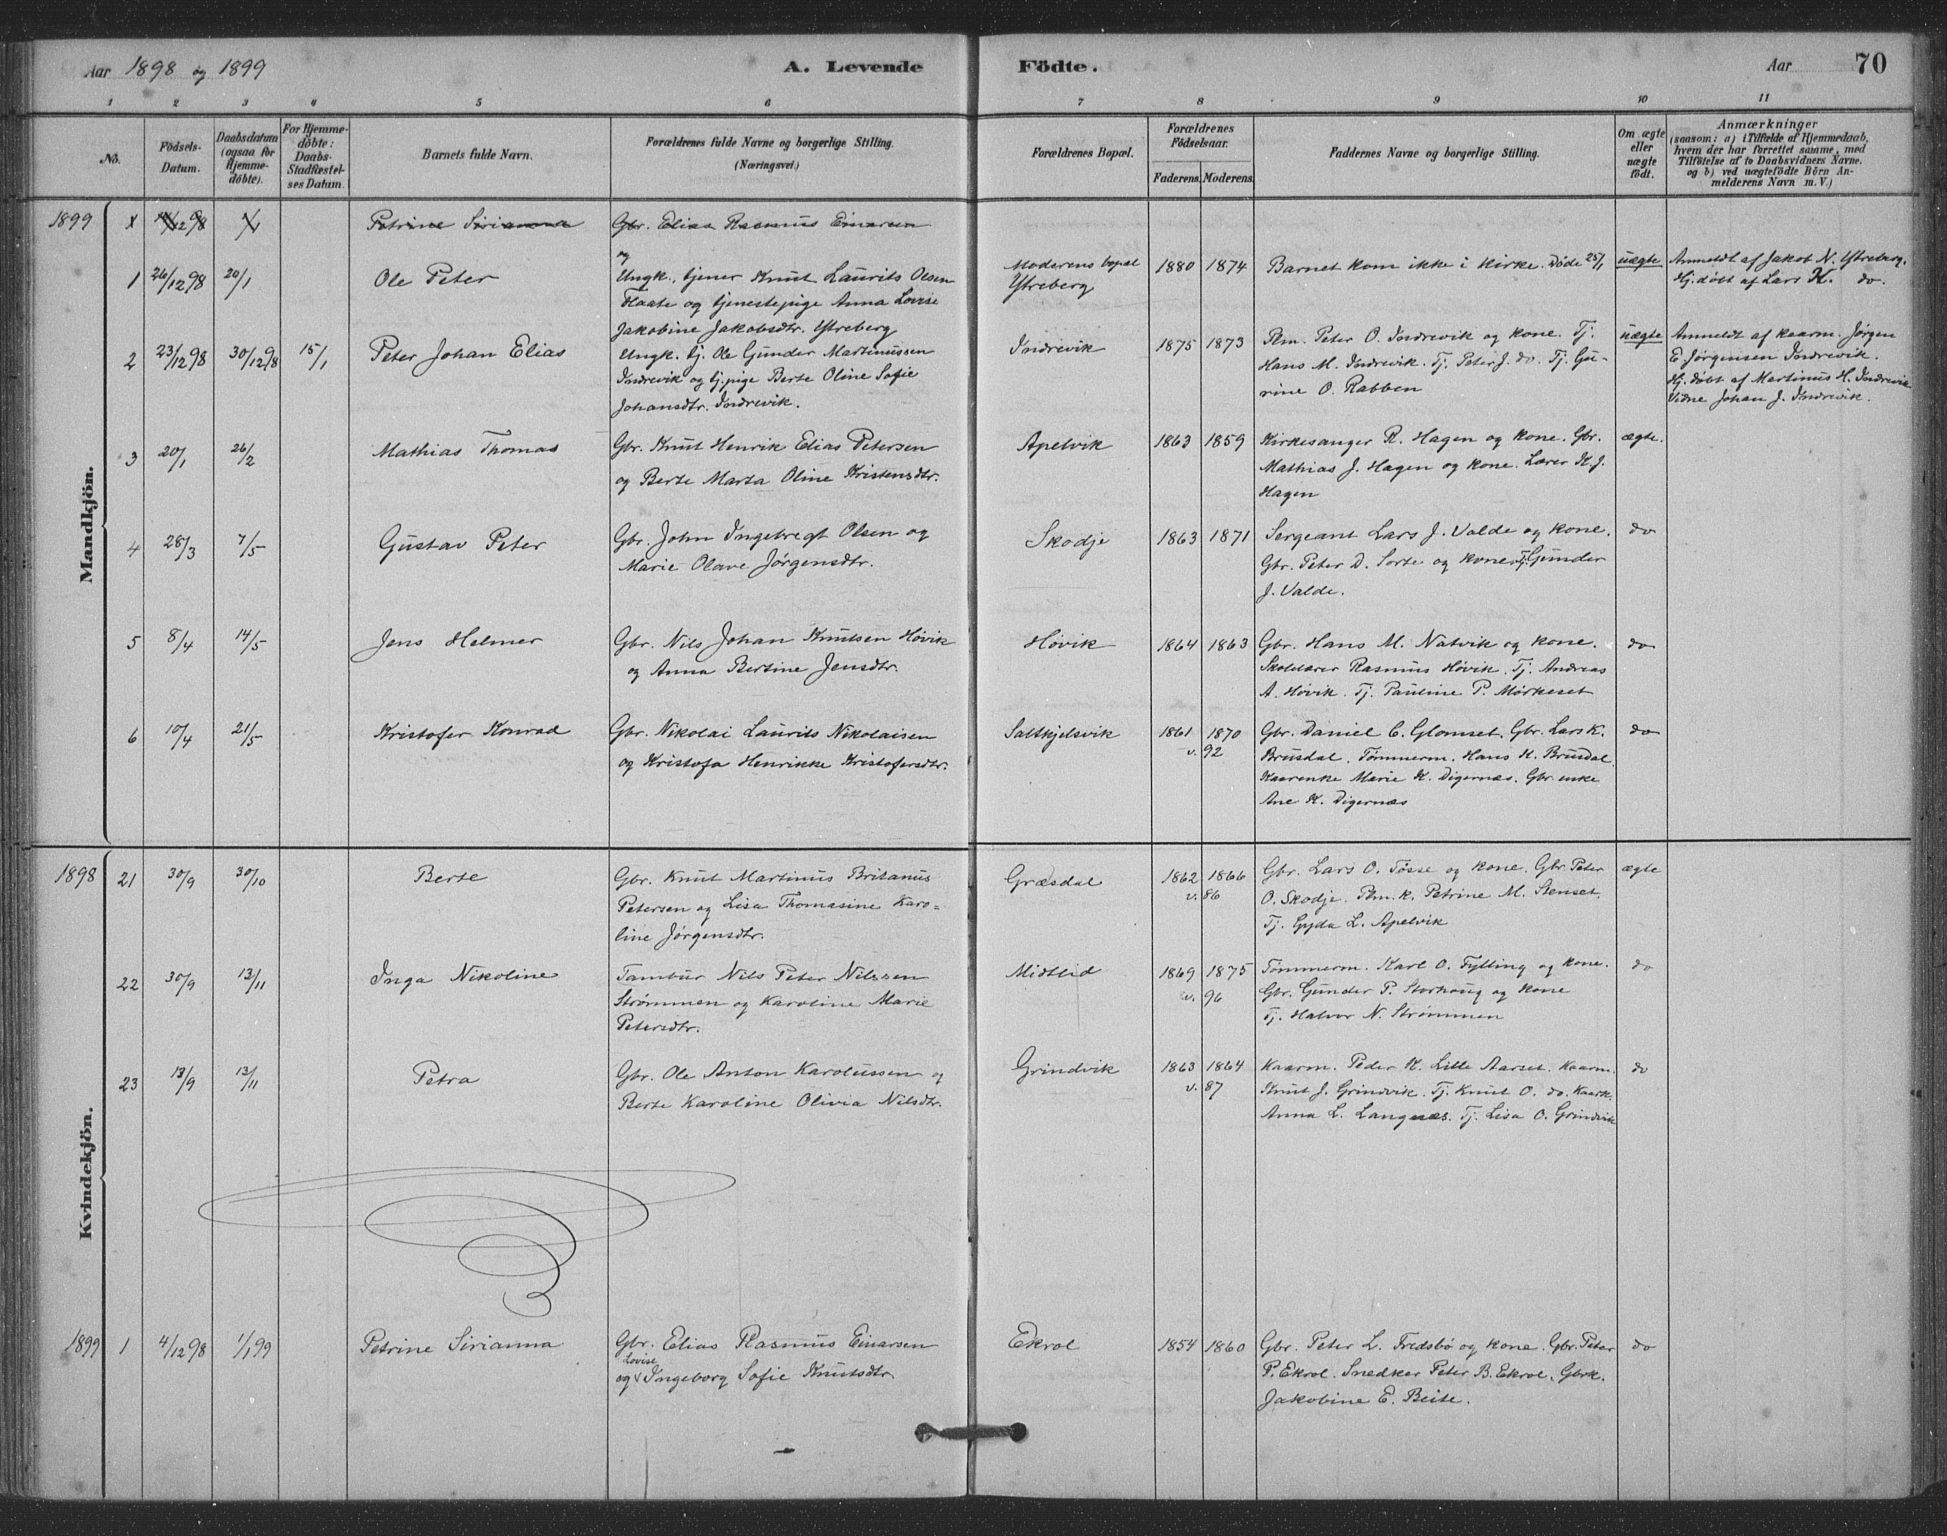 Aar 1898 og 1899 A. Levende Födte. Aar 70
1 2 3 4 5 6 7 8 9 10 11
No.
Födsels-
Datum.
Daabsdatum
(ogsaa for
Hjemme-
döbte).
For Hjemme-
döbte:
Daabs-
Stadfæstel-
ses Datum.
Barnets fulde Navn.
Forældrenes fulde Navne og borgerlige Stilling.
(Næringsvei.)
Forældrenes Bopæl.
Forældrenes
Födselsaar.
Faderens. Moderens.
Faddernes Navne og borgerlige Stilling.
Om ægte
eller
uægte
födt.
Anmærkninger
(saasom: a) i Tilfælde af Hjemmedaab,
hvem der har forrettet samme, med
Tilföielse af to Daabsvidners Navne.
og b) ved uægtefödte Börn An-
melderens Navn m. V.)
Mandkjön.
1899 Petrine Sirianna Gbr. Elias Rasmus Einarsen
og
1 26/12 98 20/1 Ole Peter Ungk., tjener Knut Laurits Olsen
Flaate og tjenestepige Anna Lovise
Jakobine Jakobsdtr. Ytreberg
Moderens bopæl
Ytreberg
1880 1874 Barnet kom ikke i kirke. Døde 25/1 uægte
Anmeldt af Jakob N. Ytreberg.
Hj.døbt af Lars K. do.
2 23/12 98 30/12 98 15/1 Peter Johan Elias Ungk. tj. Ole Gunder Martinussen
Indrevik og tj.pige Berte Oline Sofie
Johansdtr. Indrevik.
Indrevik 1875 1873 Plm. Peter O. Indrevik og kone. Tj.
Hans M. Indrevik. Tj. Peter J. do. Tj. Gu-
rine O. Rabben
uægte
Anmeldt af kaarm. Jørgen
E. Jørgensen Indrevik.
Hj.døbt af Martinus H. Indrevik
Vidne Johan J. Indrevik.
3 20/1 26/2 Mathias Thomas Gbr. Knut Henrik Elias Petersen
og Berte Marta Oline Kristensdtr.
Apelvik 1863 1859 Kirkesanger R. Hagen og kone. Gbr.
Mathias J. Hagen og kone. Lærer K. J.
Hagen
ægte.
4 28/3 7/5 Gustav Peter Gbr. John Ingebregt Olsen og
Marie Olave Jørgensdtr.
Skodje 1863 1871 Sergeant Lars J. Valde og kone.
Gbr. Peter D. Sorte og kone. Tj. Gunder
J. Valde.
do
5 8/4 14/5 Jens Helmer Gbr. Nils Johan Knutsen Høvik
og Anna Bertine Jensdtr.
Høvik 1864 1863 Gbr. Hans M. Natvik og kone.
Skolelærer Rasmus Høvik. Tj. Andreas
A. Høvik. Tj. Pauline P. Mørkeset
do
6 10/4 21/5 Kristofer Konrad Gbr. Nikolai Laurits Nikolaisen
og Kristofa Henrikke Kristofersdtr.
Saltkjelsvik 1861 1870
v. 92
Gbr. Daniel C. Glomset. Gbr. Lars K.
Brusdal. Tømmerm. Hans K. Brusdal.
Kaarenke Marie K. Digernæs. Gbr. enke
Ane K. Digernæs
do
Kvindekjön.
1898 21 30/9 30/10 Berte Gbr. Knut Martinus Britanus
Petersen og Lisa Thomasine Karo-
line Jørgensdtr.
Græsdal 1862 1866
v. 86
Gbr. Lars O. Tøsse og kone. Gbr. Peter
O. Skodje. Plm.k. Petrine M. Stenset.
Tj. Gyda L. Apelvik
ægte
22 30/9 13/11 Inga Nikoline Tambur Nils Peter Nilssen
Strømmen og Karoline Marie
Petersdtr.
Midtlid 1869 1875
v. 96
Tømmerm. Karl O. Fylling og kone.
Gbr. Gunder P. Storhaug og kone
Tj. Halvor N. Strømmen
do
23 13/9 13/11 Petra Gbr. Ole Anton Karolussen og
Berte Karoline Olivia Nilsdtr.
Grindvik 1863 1864
v. 87
Kaarm. Peder K. Lille Aarset. Kaarm.
Knut J. Grindvik. Tj. Knut O. do. Kaark.
Anna L. Langnæs. Tj. Lisa O. Grindvik
do
1899 1 4/12 98 1/1 99 Petrine Sirianna Gbr. Elias Rasmus Einarsen
Lovise
og Ingeborg Sofie Knutsdtr.
Ekrol 1854 1860 Gbr. Peter L. Fredsbø og kone. Gbr. Peter
P. Ekrol. Snedker Peter B. Ekrol. Gbrk.
Jakobine E. Beite.
do